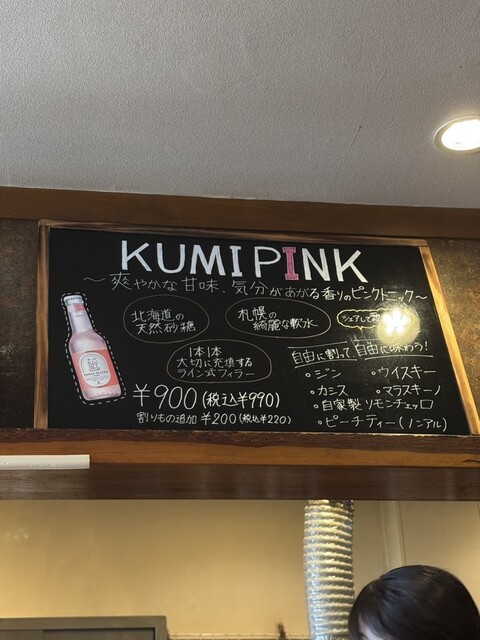 KUMI PINK
～爽やかな甘味、気分があがる香りのピンクトニック～
北海道の
天然砂糖
札幌の
綺麗な軟水
シェアして
1本1本
大切に充填する
ライン式フィラー
自由に割って、自由に味わう!
・ジン
・ウイスキー
・カシス
・マラスキーノ
・自家製リモンチェッロ
・ピーチティー(ノンアル)
¥900(税込¥990)
割りもの追加 ¥200(税込¥220)